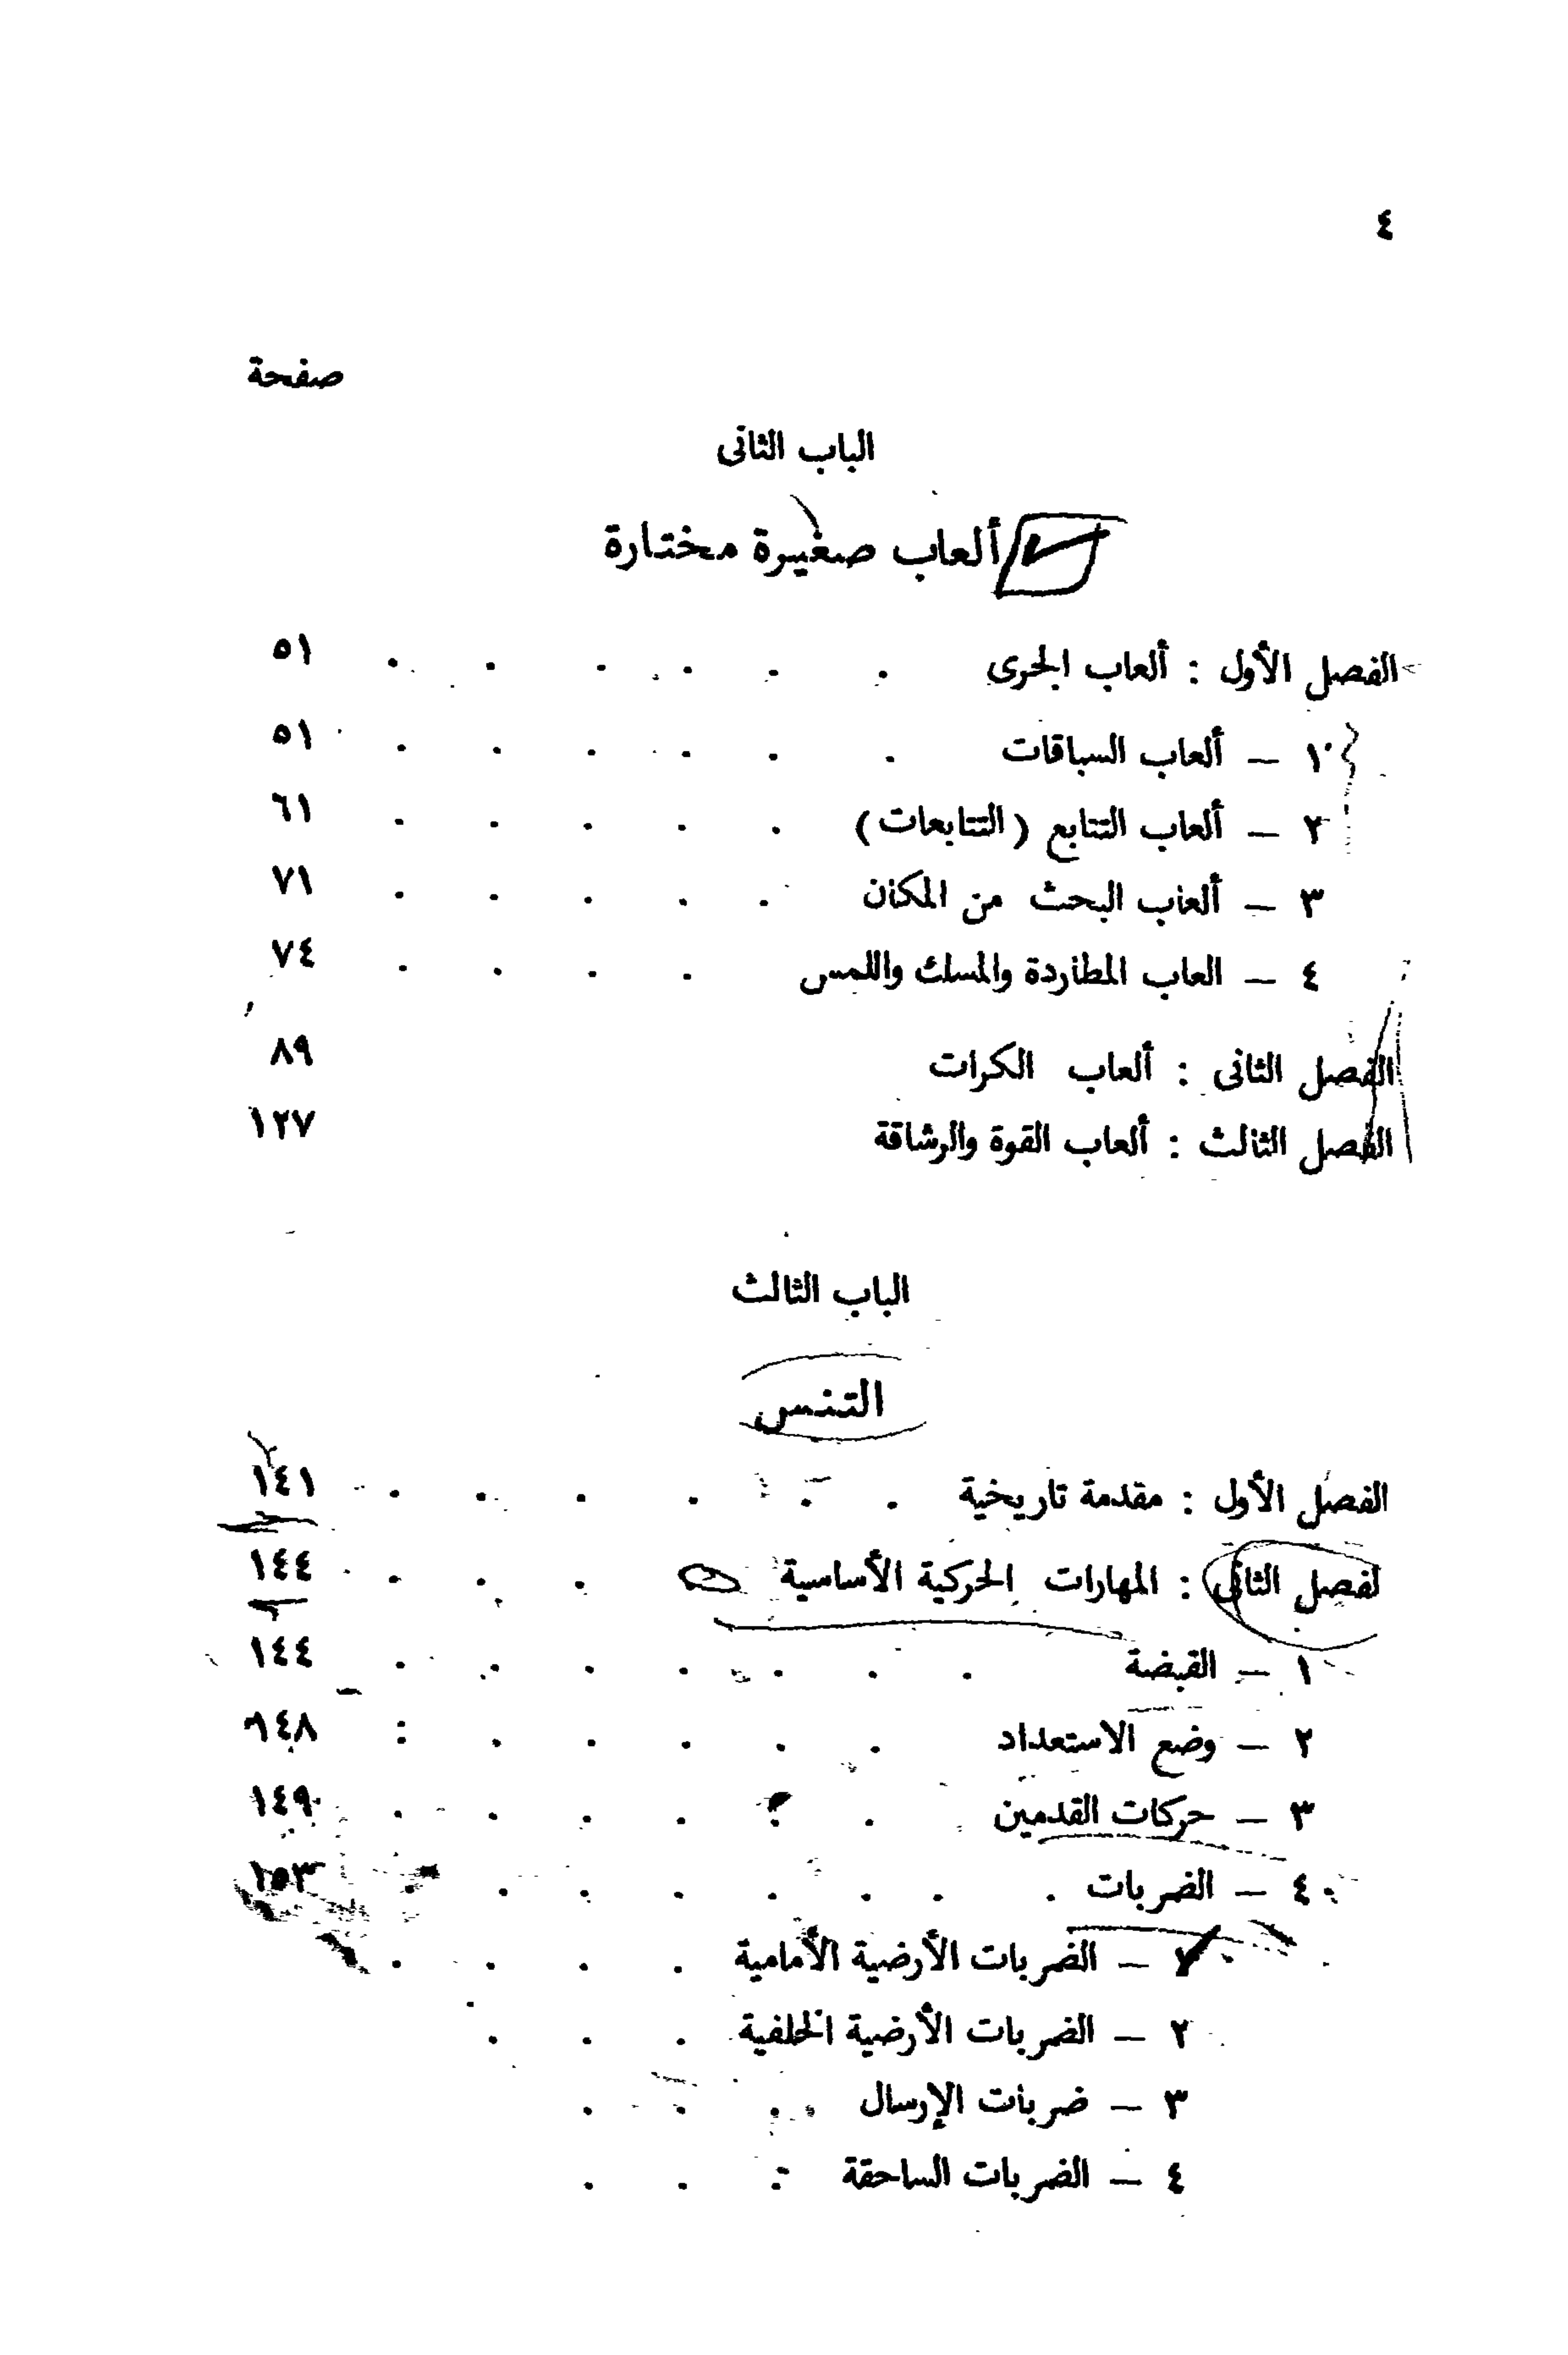 ٤
صفحة
الباب الثانى
ألعاب صغيرة مختارة
الفصل الأول : ألعاب الجرى . . . . . . ٥١
١ — ألعاب السباقات . . . . . . ٥١
٢ — ألعاب التتابع (التتابعات) . . . . . ٦١
٣ — ألعاب البحث من المكان . . . . . ٧١
٤ — العاب المطاردة والمسك واللمس . . . . ٧٤
الفصل الثانى : ألعاب الكرات ٨٩
الفصل الثالث : ألعاب القوة والرشاقة ١٢٧
الباب الثالث
التنس
الفصل الأول : مقدمة تاريخية . . . . . . ١٤١
لفصل الثانى : المهارات الحركية الأساسية . . . ١٤٤
١ — القبضة . . . . . . . ١٤٤
٢ — وضع الاستعداد . . . . . : ١٤٨
٣ — حركات القدمين . . . . . . ١٤٩
٤ — الضربات . . . . . . . . ١٥٣
١ — الضربات الأرضية الأمامية . . . .
٢ — الضربات الأرضية الخلفية . . .
٣ — ضربات الإرسال . . .
٤ — الضربات الساحقة . . .